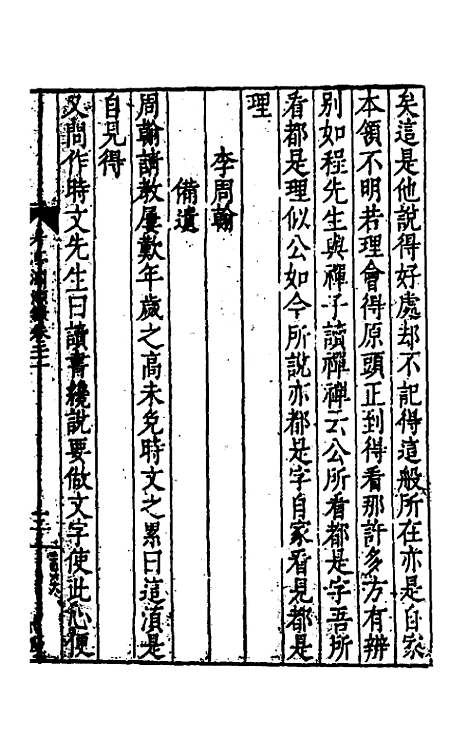 矣這是他說得好處却不記得這般所在亦是自家
本領不明若理會得原頭正到得看那許多方有辨
別如程先生與禪子讀禪禪云公所看都是字吾所
看都是理似公如今所說亦都是字自家看見都是
理
李周翰
備遺
周翰請教屢歎年歲之高未免時文之累曰這湏是
自見得
又問作時文先生曰讀書纔說要做文字使此心便